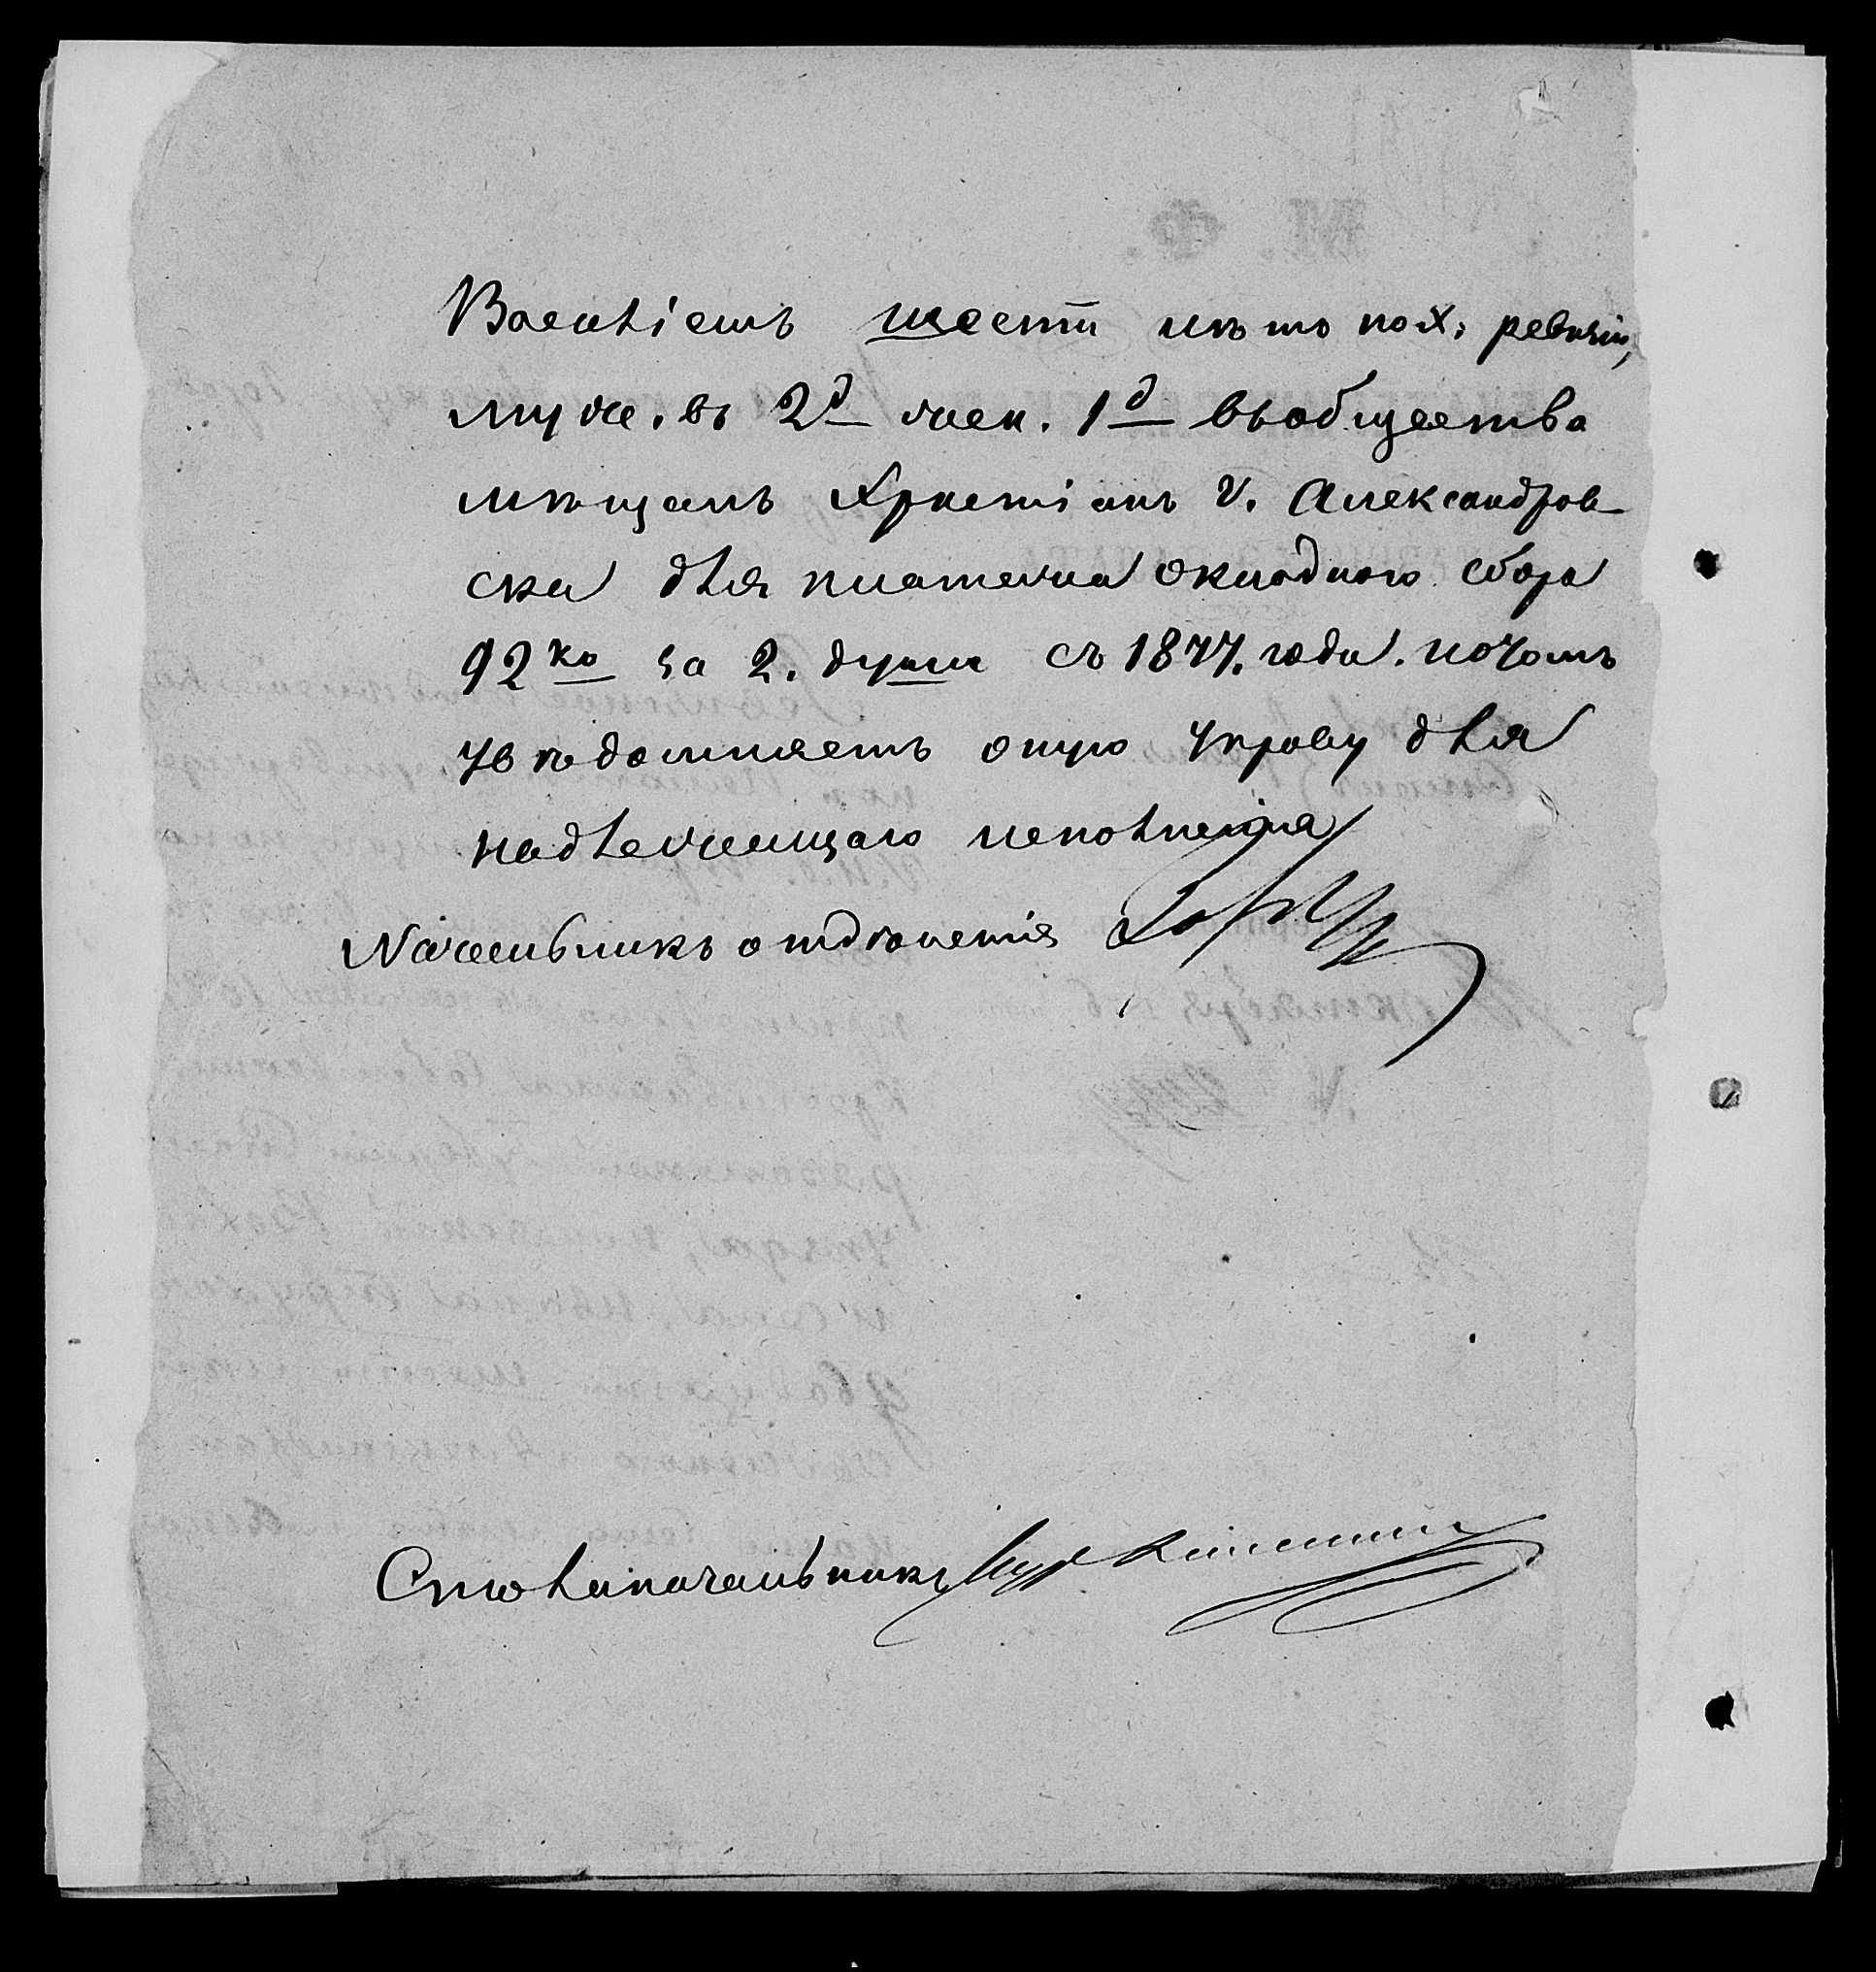 Васильемъ шести лѣтъ пол. ревизіи,
муж. въ 2д жен. 1д въ общества
мѣщанъ Христіанъ г. Александров-
ска для платежа окладного сбора
92 ко за 2. души съ 1877. года. по чемъ
увѣдомляетъ оную Управу для
надлежащаго исполненія
Начальникъ отдѣленія
Столоначальникъ